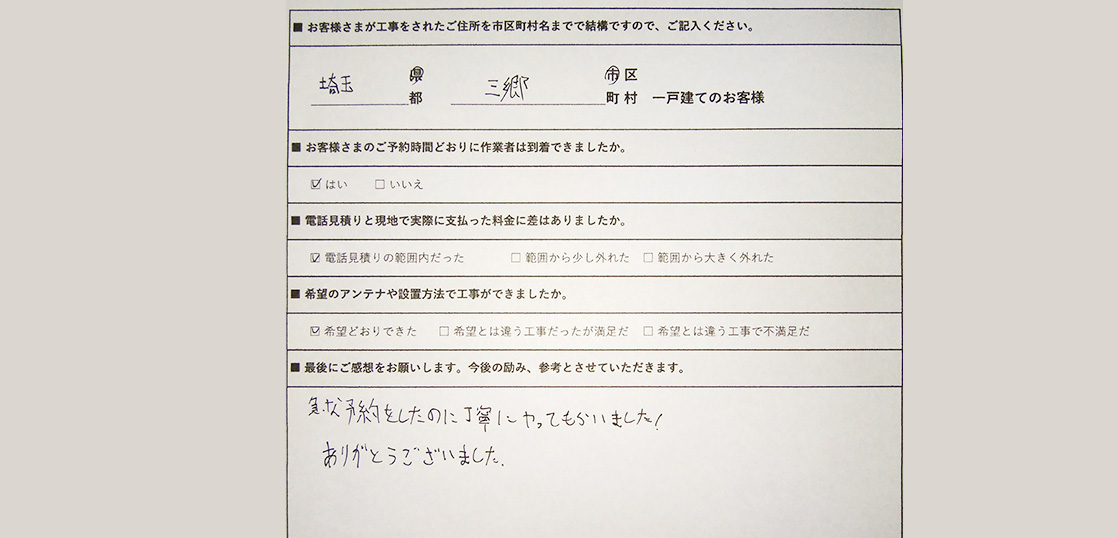 ■ お客様さまが工事をされたご住所を市区町村名までで結構ですので、ご記入ください。
埼玉 県 三郷 市 区
都 町 村 一戸建てのお客様
■ お客様さまのご予約時間どおりに作業者は到着できましたか。
☑ はい □ いいえ
■ 電話見積りと現地で実際に支払った料金に差はありましたか。
☑ 電話見積りの範囲内だった □ 範囲から少し外れた □ 範囲から大きく外れた
■ 希望のアンテナや設置方法で工事ができましたか。
☑ 希望どおりできた □ 希望とは違う工事だったが満足だ □ 希望とは違う工事で不満足だ
■ 最後にご感想をお願いします。今後の励み、参考とさせていただきます。
急な予約をしたのに丁寧にやってもらいました!
ありがとうございました.